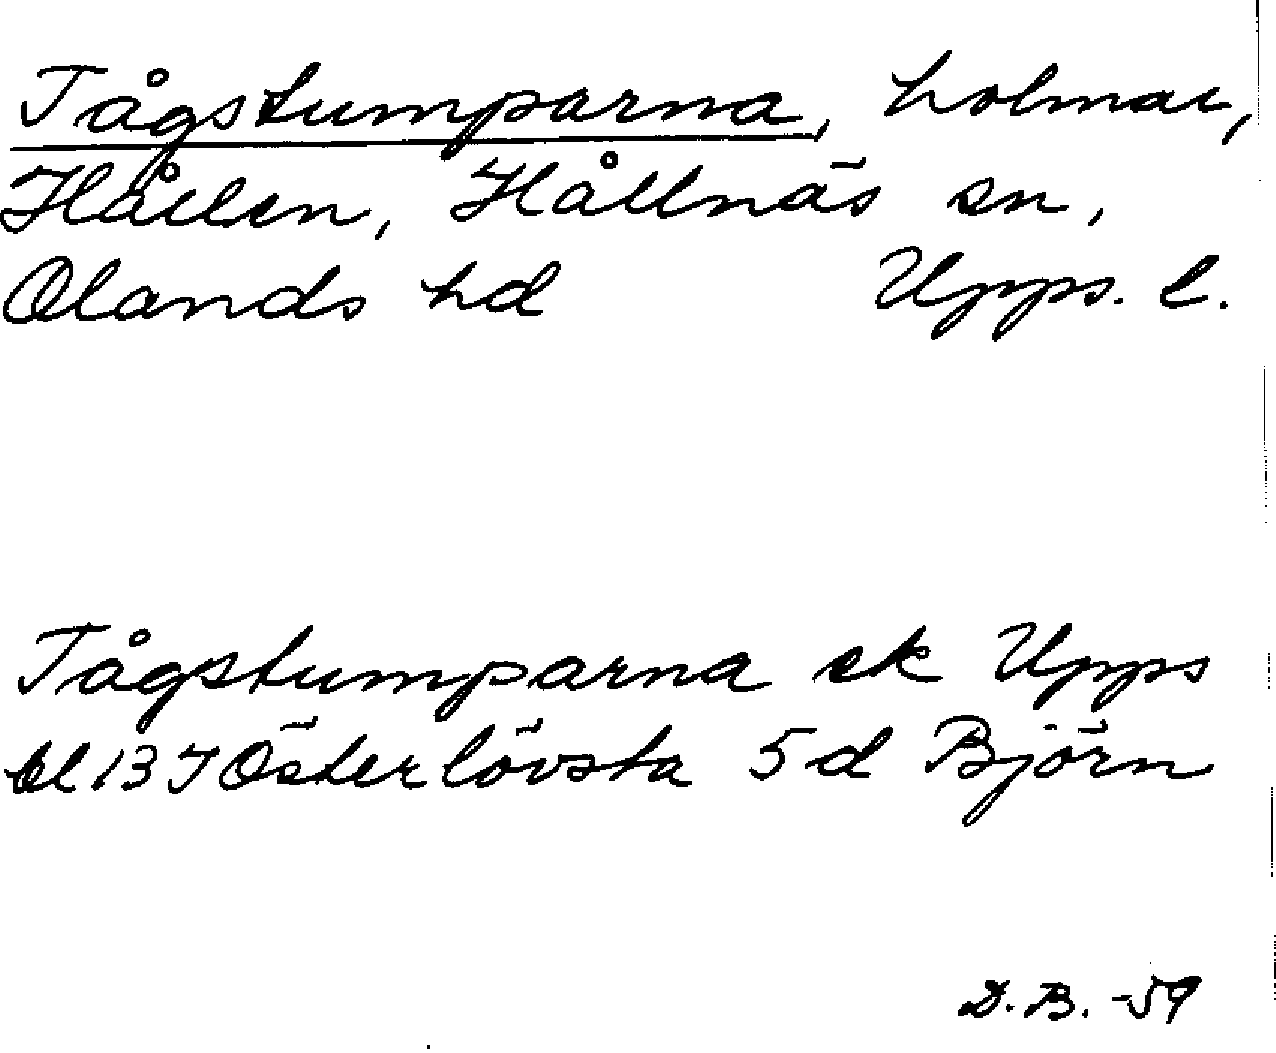 Tågstumparna, holmar,
Hållen, Hållnäs sn,
Olands hd Upps. l.
Tågstumparna ek Upps
bl 13 I Österlövsta 5d Björn
D.B. -59